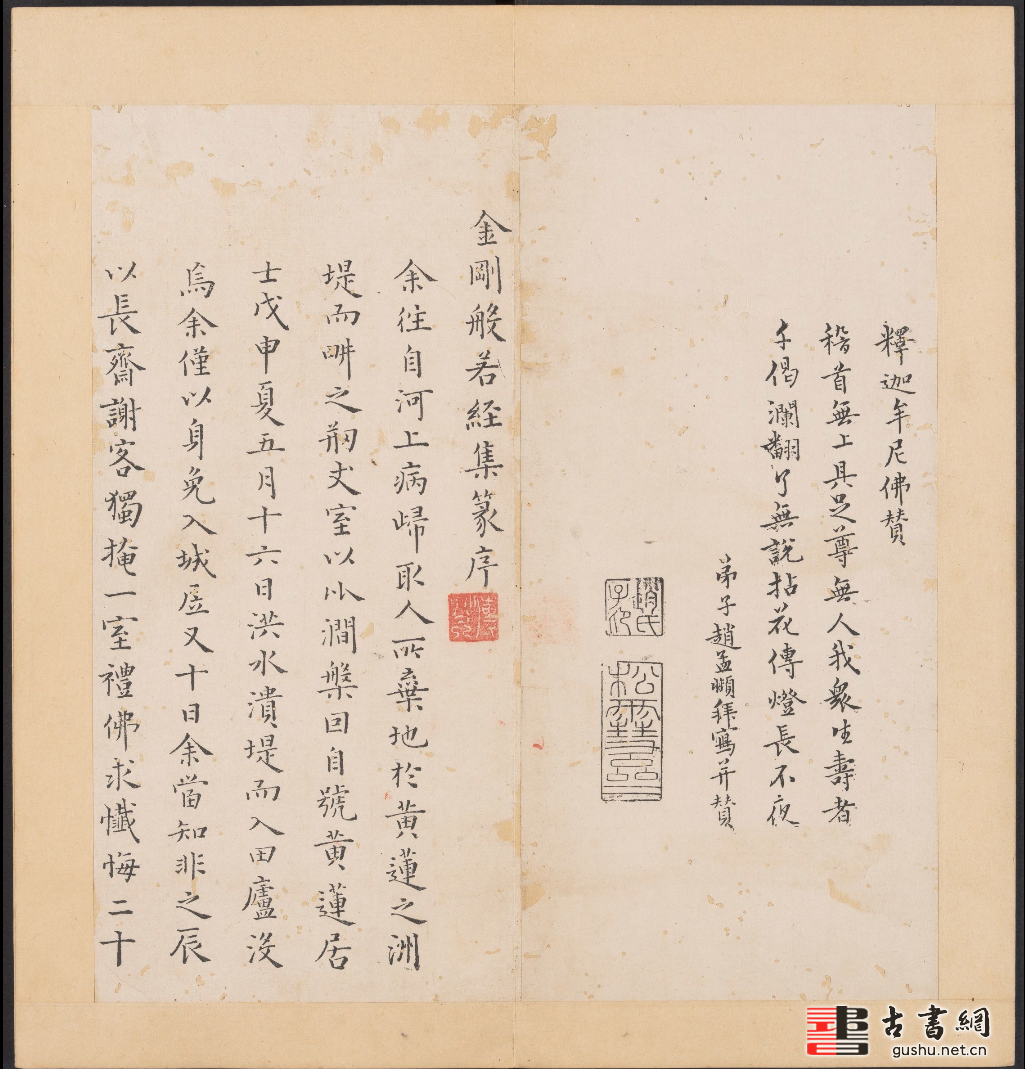 釋迦牟尼佛贊
稽首無上具足尊無人我衆生壽者
千偈瀾翻了無說拈花傳燈長不夜
弟子趙孟頫拜寫并贊
趙氏子印
松雪齋
金剛般若經集篆序
余往自河上病歸取人所棄地於黄蓮之洲
堤而畊之剏丈室以小澗槃回自號黄蓮居
士戊申夏五月十六日洪水潰堤而入田廬没
焉余僅以身免入城居又十日余當知非之辰
以長齋謝客獨掩一室禮佛求懺悔二十
古書網
gushu.net.cn